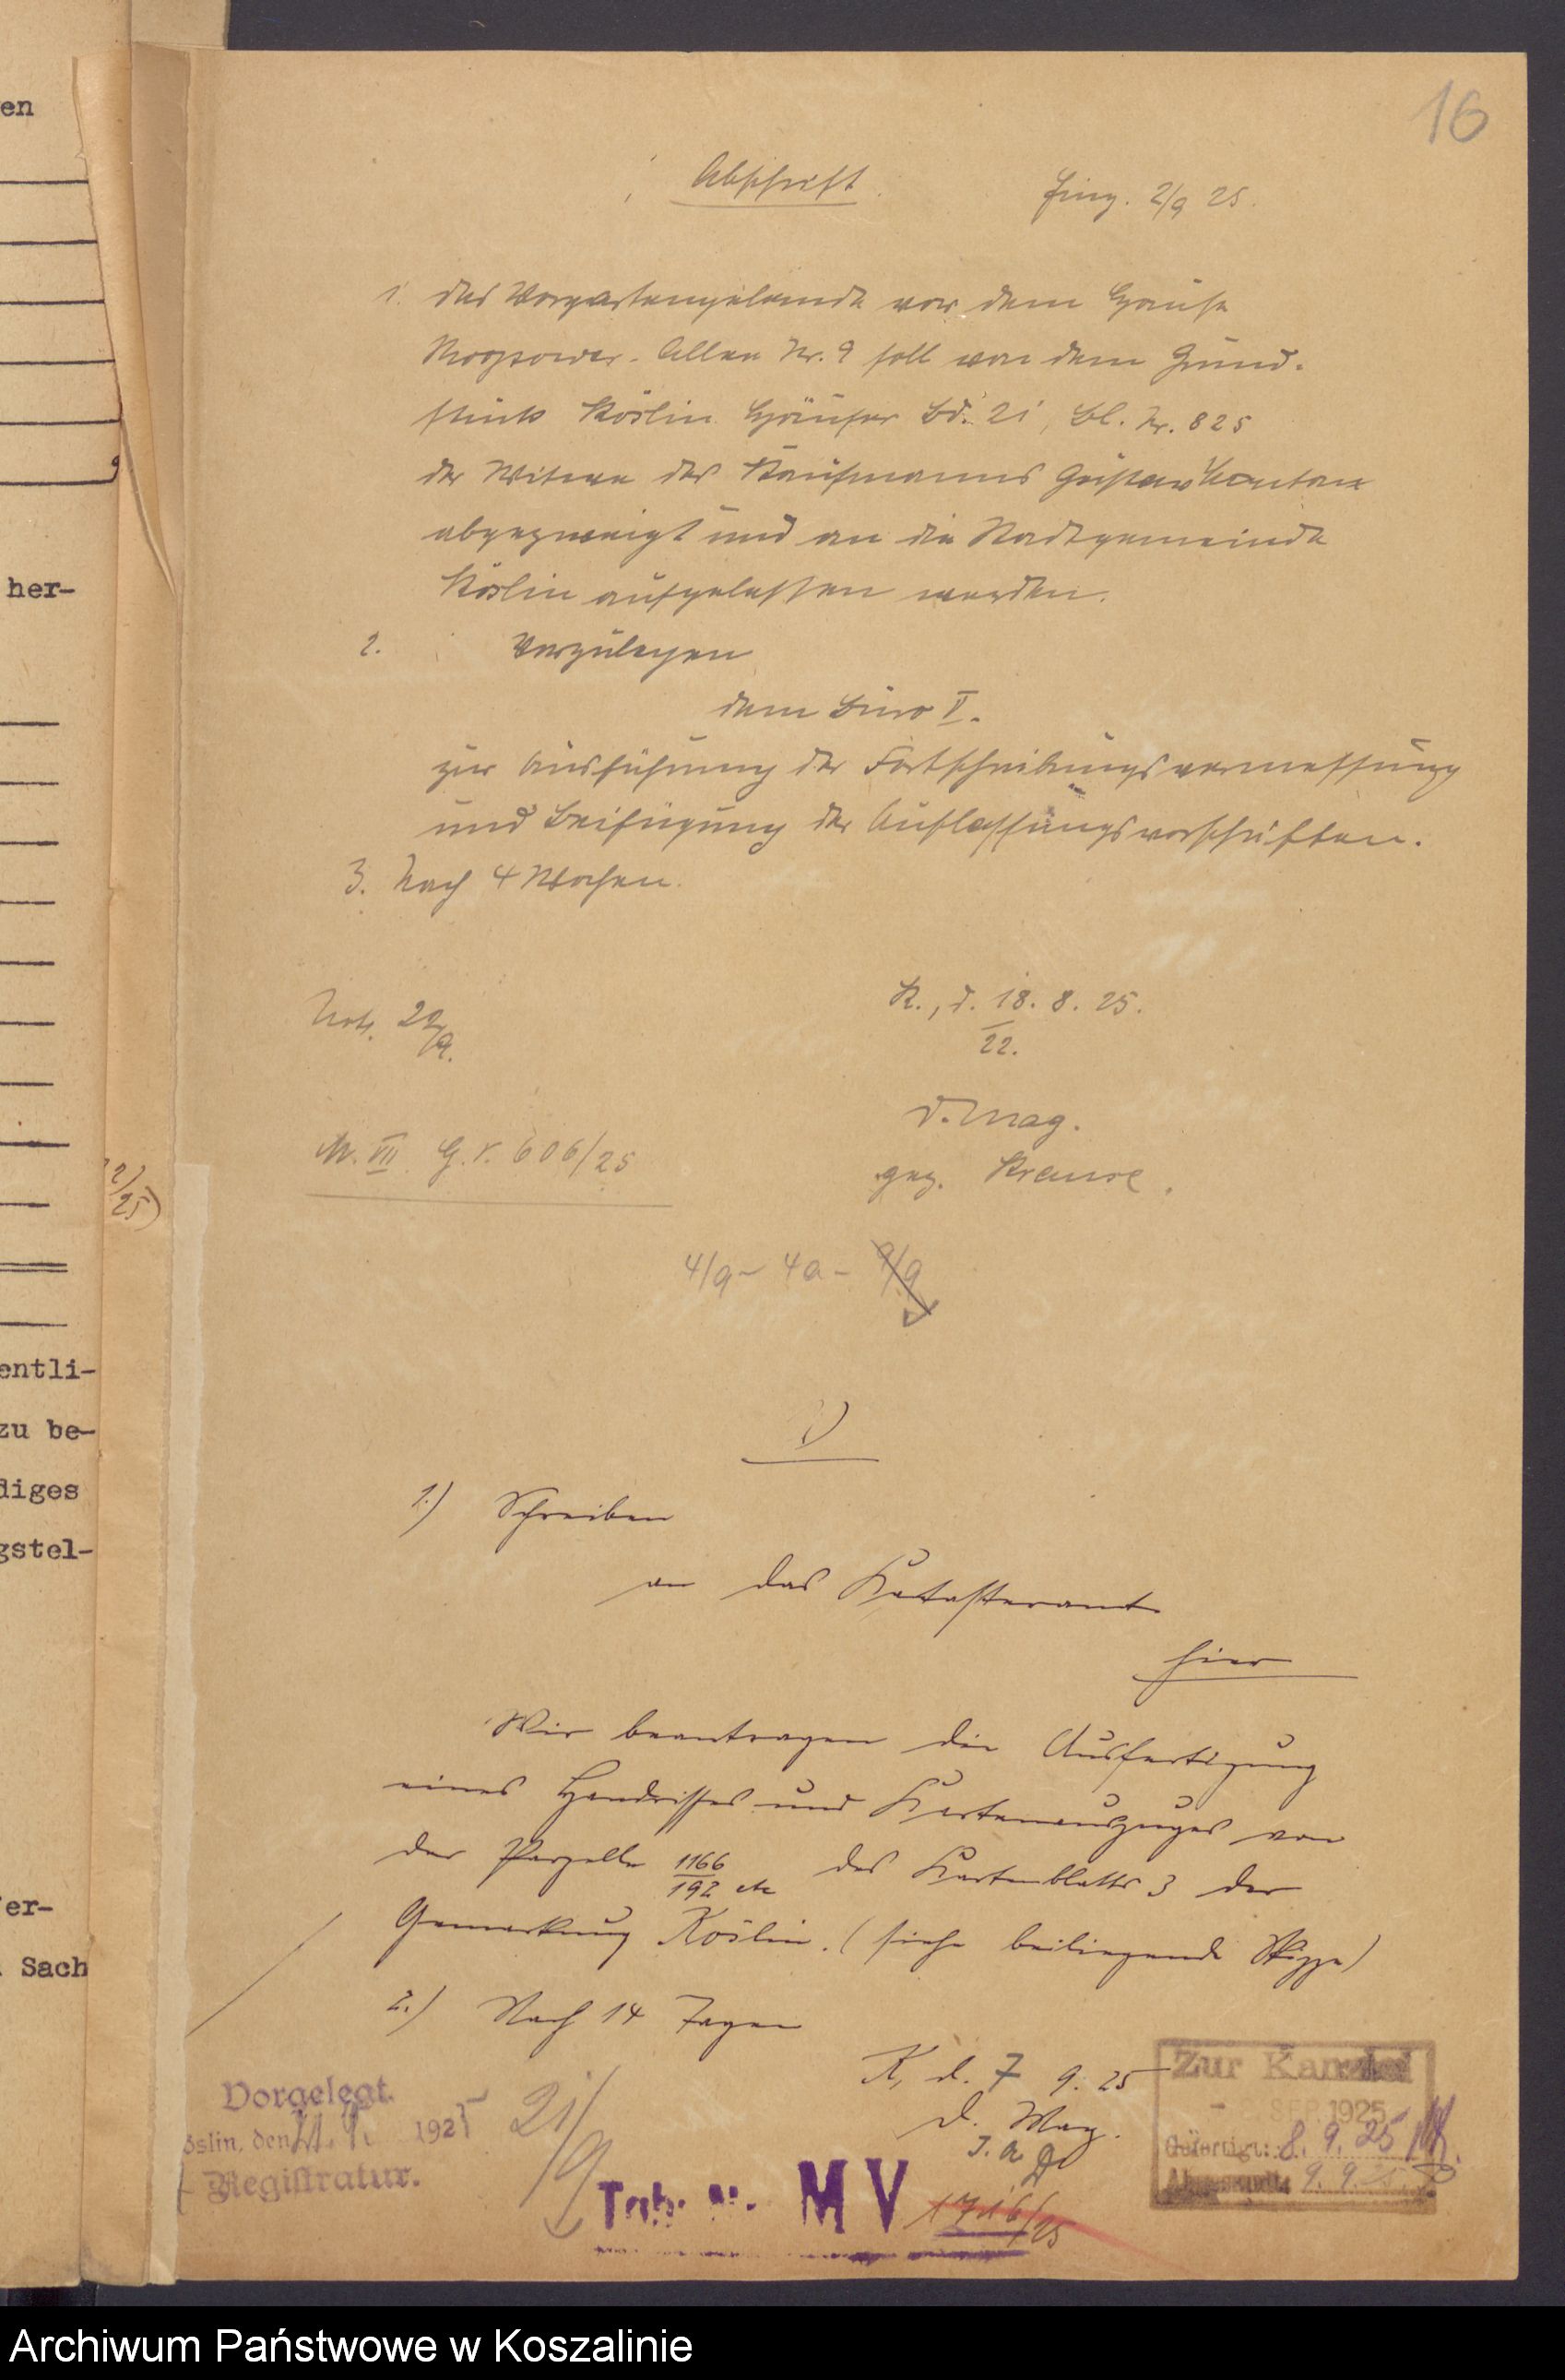 16
Abschrift
Eing. 2/9 25.
1. Das Vorgartengelände vor dem Hause
Rogzower-Allee Nr. 9 soll von dem Grund-
stück Köslin Häuser Bd. 21, Bl. Nr. 825
der Witwe des Kaufmanns Gustav
abgezweigt und an die Stadtgemeinde
Köslin aufgelassen werden.
2. Vorzulegen
dem Büro V.
zur Ausführung der Fortschreibungsvermessung
und Beifügung der Auflassungsvorschriften.
3. Nach 4 Wochen.
Not. 29/9.
K., d. 18. 8. 25.
22.
D. Mag.
gez. Krause.
M. VII. G. V. 606/25
4/9 - 4a - 9/9
V
1.) Schreiben
an das Katasteramt
hier
Wir beantragen die Ausfertigung
eines Handrisses und Kartenauszuges von
der Parzelle 1166/192 etc des Kartenblatts 3 der
Gemarkung Köslin. (siehe beiliegende Skizze)
2.) Nach 14 Tagen
K, d. 7 9. 25
D. Mag.
J. A.
Vorgelegt.
öslin, den 21. 9. 1925
Registratur.
21/9
Tgb. Nr. M V 1716/25
Zur Kanzlei
SEP. 1925
Gefertigt: 8. 9. 25
Abgesandt: 9. 9. 25
en
her-
2/25)
entli-
zu be-
diges
gstel-
er-
Sach
Archiwum Państwowe w Koszalinie